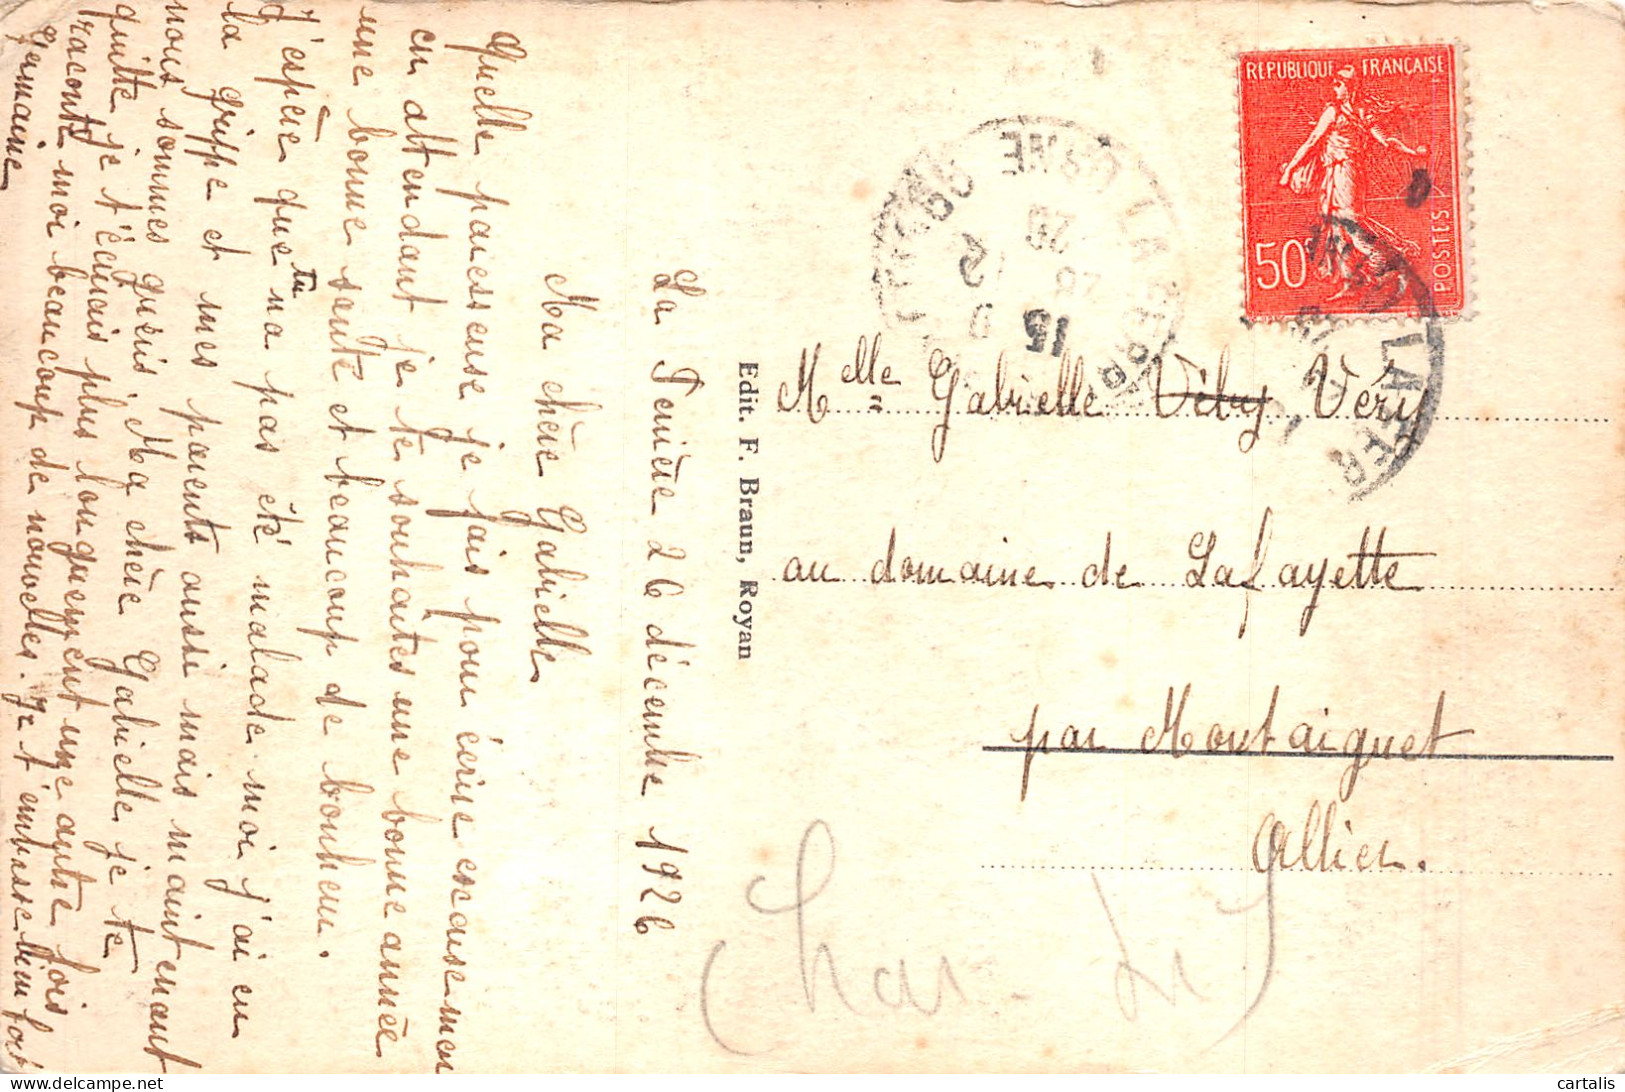 La Ferrière 26 décembre 1926
Ma chère Gabrielle
Quelle paiesseuse je fais pour écrire escause-moi
en attendant je te souhaites une bonne année
une bonne santé et beaucoup de bonheur.
J'espère que tu na pas été malade moi j'ai eu
la grippe et mes parents aussi mais maintenant
nous sommes guéris. Ma chère Gabrielle je te
quitte je t'écrirais plus longuement une autre fois
raconte moi beaucoup de nouvelles. Je t'embrasse bien fort
Germaine
Edit. F. Braun, Royan
REPUBLIQUE FRANÇAISE
50c
POSTES
15
20
Melle Gabrielle Véby Véry
au domaine de Lafayette
par Montaiguet
Allier.
Char
cartalis
delcampe.net